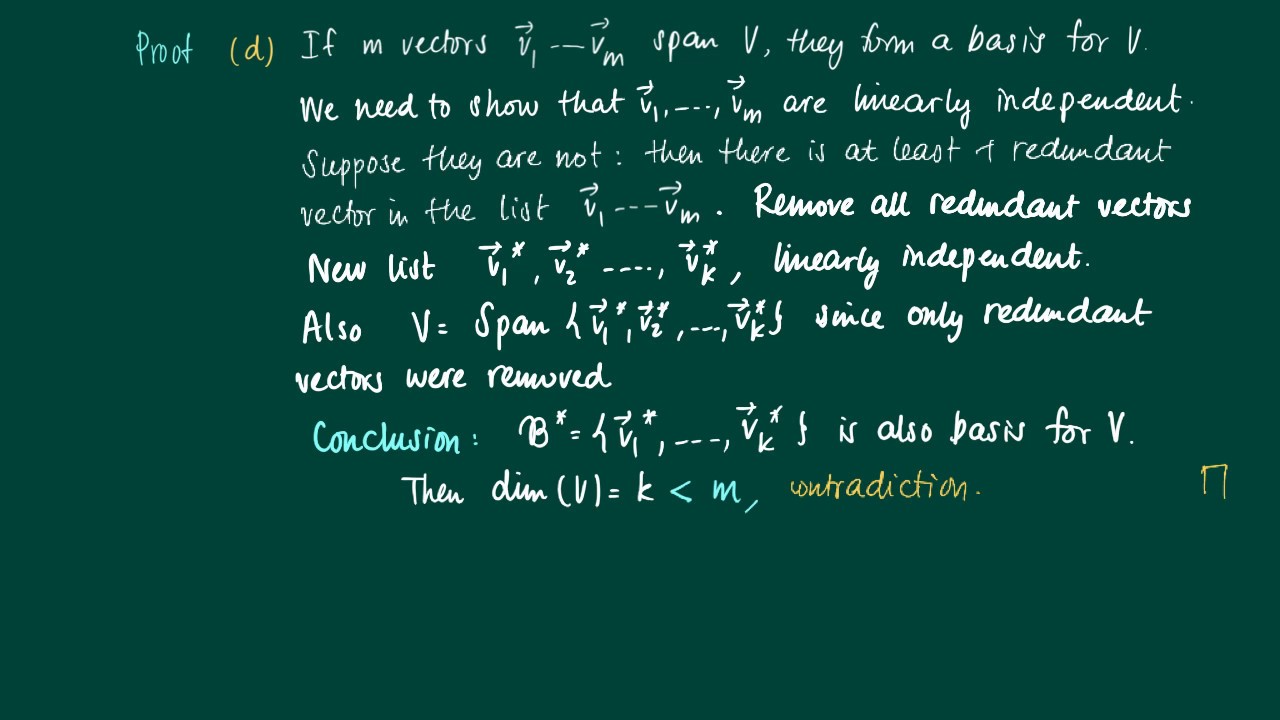 Proof (d) If m vectors v⃗₁ ---v⃗ₘ span V, they form a basis for V.
We need to show that v⃗₁,---, v⃗ₘ are linearly independent.
Suppose they are not: then there is at least 1 redundant
vector in the list v⃗₁ ---v⃗ₘ. Remove all redundant vectors
New list v⃗₁*, v⃗₂* ----, v⃗ₖ*, linearly independent.
Also V= Span {v⃗₁*, v⃗₂*, ---, v⃗ₖ*} since only redundant
vectors were removed
Conclusion: B*= {v⃗₁*, ---, v⃗ₖ*} is also basis for V.
Then dim (V)= k < m, contradiction.